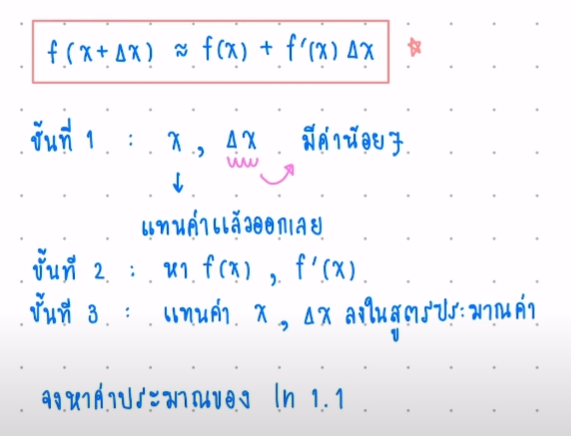 f(x+Δx) ≈ f(x) + f'(x) Δx
ขั้นที่ 1 : x , Δx มีค่าน้อยๆ
แทนค่าแล้วออกเลย
ขั้นที่ 2 : หา f(x) , f'(x)
ขั้นที่ 3 : แทนค่า x , Δx ลงในสูตรประมาณค่า
จงหาค่าประมาณของ ln 1.1